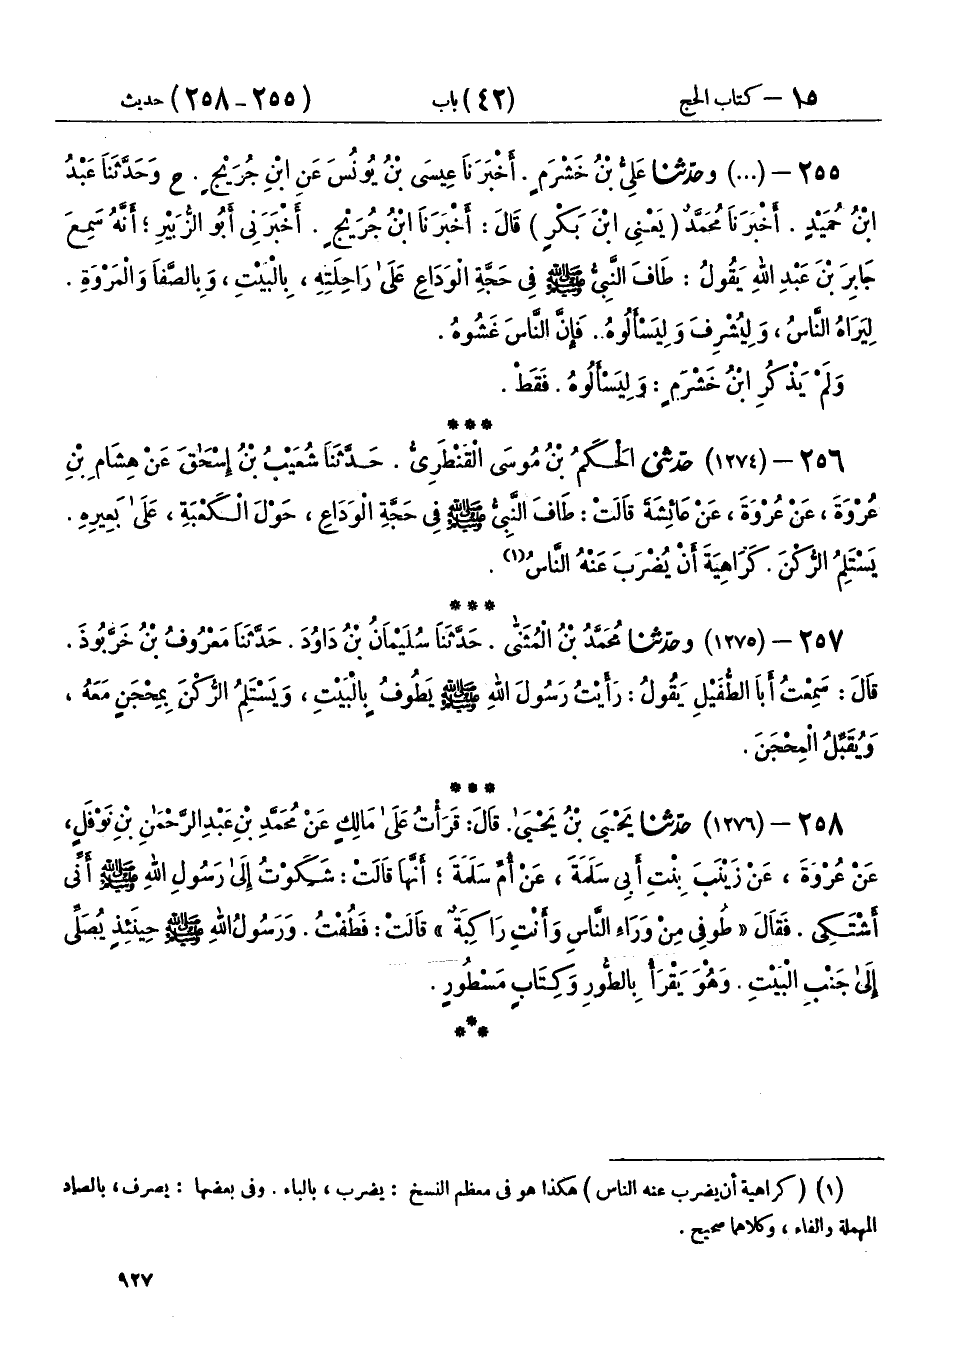 ١٥ – كتاب الحج (٤٢) باب (٢٥٥ – ٢٥٨) حديث
٢٥٥ – (...) وحَدَّثَنَا عَلِيُّ بْنُ خَشْرَمٍ. أَخْبَرَنَا عِيسَى بْنُ يُونُسَ عَنِ ابْنِ جُرَيْجٍ. ح وَحَدَّثَنَا عَبْدُ
ابْنُ حُمَيْدٍ. أَخْبَرَنَا مُحَمَّدٌ (يَعْنِي ابْنَ بَكْرٍ) قَالَ: أَخْبَرَنَا ابْنُ جُرَيْجٍ. أَخْبَرَنِي أَبُو الزُّبَيْرِ؛ أَنَّهُ سَمِعَ
جَابِرَ بْنَ عَبْدِ اللهِ يَقُولُ: طَافَ النَّبِيُّ ﷺ فِي حَجَّةِ الْوَدَاعِ عَلَىٰ رَاحِلَتِهِ، بِالْبَيْتِ، وَبِالصَّفَا وَالْمَرْوَةِ.
لِيَرَاهُ النَّاسُ، وَلِيُشْرِفَ وَلِيَسْأَلُوهُ.. فَإِنَّ النَّاسَ غَشُوهُ.
وَلَمْ يَذْكُرِ ابْنُ خَشْرَمٍ: وَلِيَسْأَلُوهُ. فَقَطْ.
***
٢٥٦ – (١٢٧٤) حَدَّثَنِي الْحَكَمُ بْنُ مُوسَى الْقَنْطَرِيُّ. حَدَّثَنَا شُعَيْبُ بْنُ إِسْحَٰقَ عَنْ هِشَامِ بْنِ
عُرْوَةَ، عَنْ عُرْوَةَ، عَنْ عَائِشَةَ قَالَتْ: طَافَ النَّبِيُّ ﷺ فِي حَجَّةِ الْوَدَاعِ، حَوْلَ الْكَعْبَةِ، عَلَىٰ بَعِيرِهِ.
يَسْتَلِمُ الرُّكْنَ. كَرَاهِيَةَ أَنْ يُضْرَبَ عَنْهُ النَّاسُ(١).
***
٢٥٧ – (١٢٧٥) وحَدَّثَنَا مُحَمَّدُ بْنُ الْمُثَنَّىٰ. حَدَّثَنَا سُلَيْمَانُ بْنُ دَاوُدَ. حَدَّثَنَا مَعْرُوفُ بْنُ خَرَّبُوذَ.
قَالَ: سَمِعْتُ أَبَا الطُّفَيْلِ يَقُولُ: رَأَيْتُ رَسُولَ اللهِ ﷺ يَطُوفُ بِالْبَيْتِ، وَيَسْتَلِمُ الرُّكْنَ بِمِحْجَنٍ مَعَهُ،
وَيُقَبِّلُ الْمِحْجَنَ.
***
٢٥٨ – (١٢٧٦) حَدَّثَنَا يَحْيَى بْنُ يَحْيَىٰ. قَالَ: قَرَأْتُ عَلَىٰ مَالِكٍ عَنْ مُحَمَّدِ بْنِ عَبْدِ الرَّحْمَٰنِ بْنِ نَوْفَلٍ،
عَنْ عُرْوَةَ، عَنْ زَيْنَبَ بِنْتِ أَبِي سَلَمَةَ، عَنْ أُمِّ سَلَمَةَ؛ أَنَّهَا قَالَتْ: شَكَوْتُ إِلَىٰ رَسُولِ اللهِ ﷺ أَنِّي
أَشْتَكِي. فَقَالَ « طُوفِي مِنْ وَرَاءِ النَّاسِ وَأَنْتِ رَاكِبَةٌ » قَالَتْ: فَطُفْتُ. وَرَسُولُ اللهِ ﷺ حِينَئِذٍ يُصَلِّي
إِلَىٰ جَنْبِ الْبَيْتِ. وَهُوَ يَقْرَأُ بِالطُّورِ وَكِتَابٍ مَسْطُورٍ.
***
(١) (كراهية أن يضرب عنه الناس) هكذا هو في معظم النسخ: يضرب، بالباء. وفي بعضها: يصرف، بالصاد
المهملة والفاء، وكلاهما صحيح.
٩٢٧